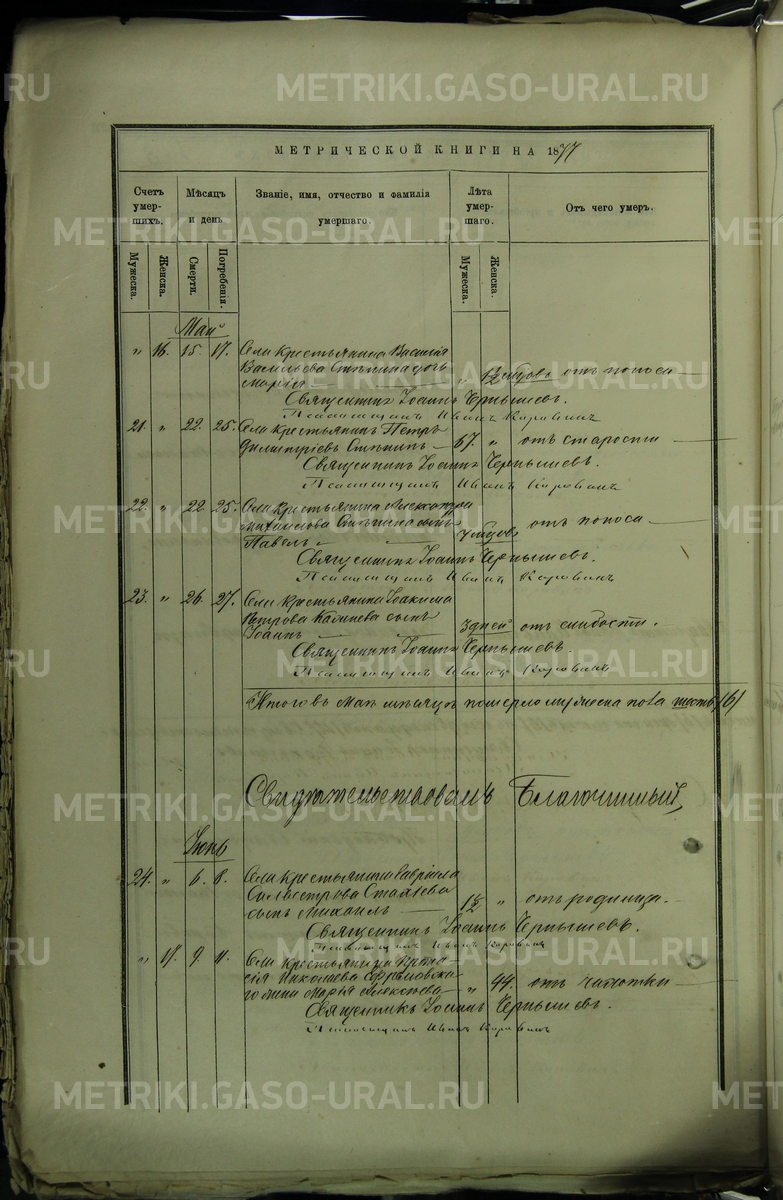 METRIKI.GASO-URAL.RU
МЕТРИЧЕСКОЙ КНИГИ НА 1877
Счетъ умершихъ.
Мѣсяцъ и день
Званіе, имя, отчество и фамилія умершаго.
Лѣта умершаго.
Отъ чего умеръ.
Мужеска.
Женска.
Смерти.
Погребенія.
Мужеска.
Женска.
Май
" 16. 15. 17. Села крестьянина Василія
Васильева дочь
Марія " 1½ отъ поноса
Священникъ Іоаннъ Чернышевъ.
Псаломщикъ Иванъ
21. " 22. 25. Села крестьянинъ Петръ
Димитріевъ 67. " отъ старости
Священникъ Іоаннъ Чернышевъ.
Псаломщикъ Иванъ
22. " 22 25. Села крестьянина Александра
Михайлова сынъ
Павелъ 7 отъ поноса
Священникъ Іоаннъ Чернышевъ.
Псаломщикъ Иванъ
23. " 26. 27. Села крестьянина Іоакима
Петрова сынъ
Іоаннъ 3 дней отъ слабости.
Священникъ Іоаннъ Чернышевъ.
Псаломщикъ Иванъ
Итого въ маѣ мѣсяцѣ померло мужеска пола шесть /6/
Свидѣтельствовалъ Благочинный,
Іюнь
24. " 6. 8. Села крестьянина Гавріила
сынъ Михаилъ 1½ " отъ родимца.
Священникъ Іоаннъ Чернышевъ.
Псаломщикъ Иванъ
" 17. 9. 11. Села крестьянина
Николаева
жена Марія Алексѣева " 44. отъ чахотки
Священникъ Іоаннъ Чернышевъ.
Псаломщикъ Иванъ